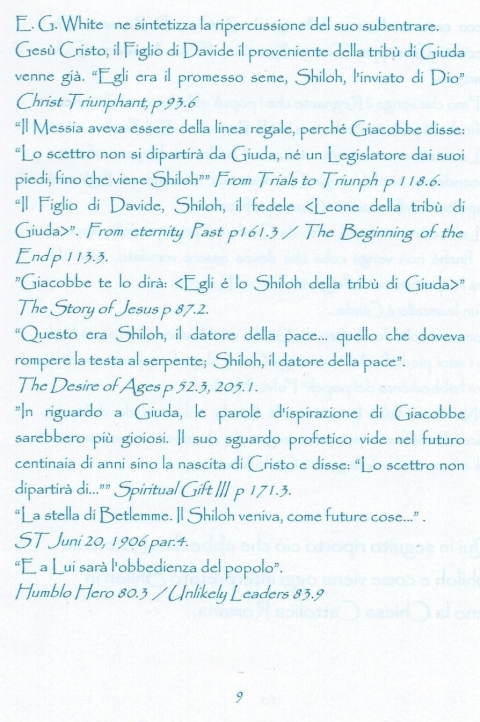 E. G. White ne sintetizza la ripercussione del suo subentrare.
Gesù Cristo, il Figlio di Davide il proveniente della tribù di Giuda
venne già. “Egli era il promesso seme, Shiloh, l'inviato di Dio”
Christ Triunphant, p 93.6
“Il Messia aveva essere della linea regale, perché Giacobbe disse:
“Lo scettro non si dipartirà da Giuda, né un Legislatore dai suoi
piedi, fino che viene Shiloh”” From Trials to Triunph p 118.6.
“Il Figlio di Davide, Shiloh, il fedele <Leone della tribù di
Giuda>”. From eternity Past p161.3 / The Beginning of the
End p 113.3.
”Giacobbe te lo dirà: <Egli é lo Shiloh della tribù di Giuda>”
The Story of Jesus p 87.2.
“Questo era Shiloh, il datore della pace... quello che doveva
rompere la testa al serpente; Shiloh, il datore della pace”.
The Desire of Ages p 52.3, 205.1.
”In riguardo a Giuda, le parole d'ispirazione di Giacobbe
sarebbero più gioiosi. Il suo sguardo profetico vide nel futuro
centinaia di anni sino la nascita di Cristo e disse: “Lo scettro non
dipartirà di...”” Spiritual Gift III p 171.3.
“La stella di Betlemme. Il Shiloh veniva, come future cose...” .
ST Juni 20, 1906 par.4.
“E a Lui sarà l'obbedienza del popolo”.
Humblo Hero 80.3 / Unlikely Leaders 83.9
9